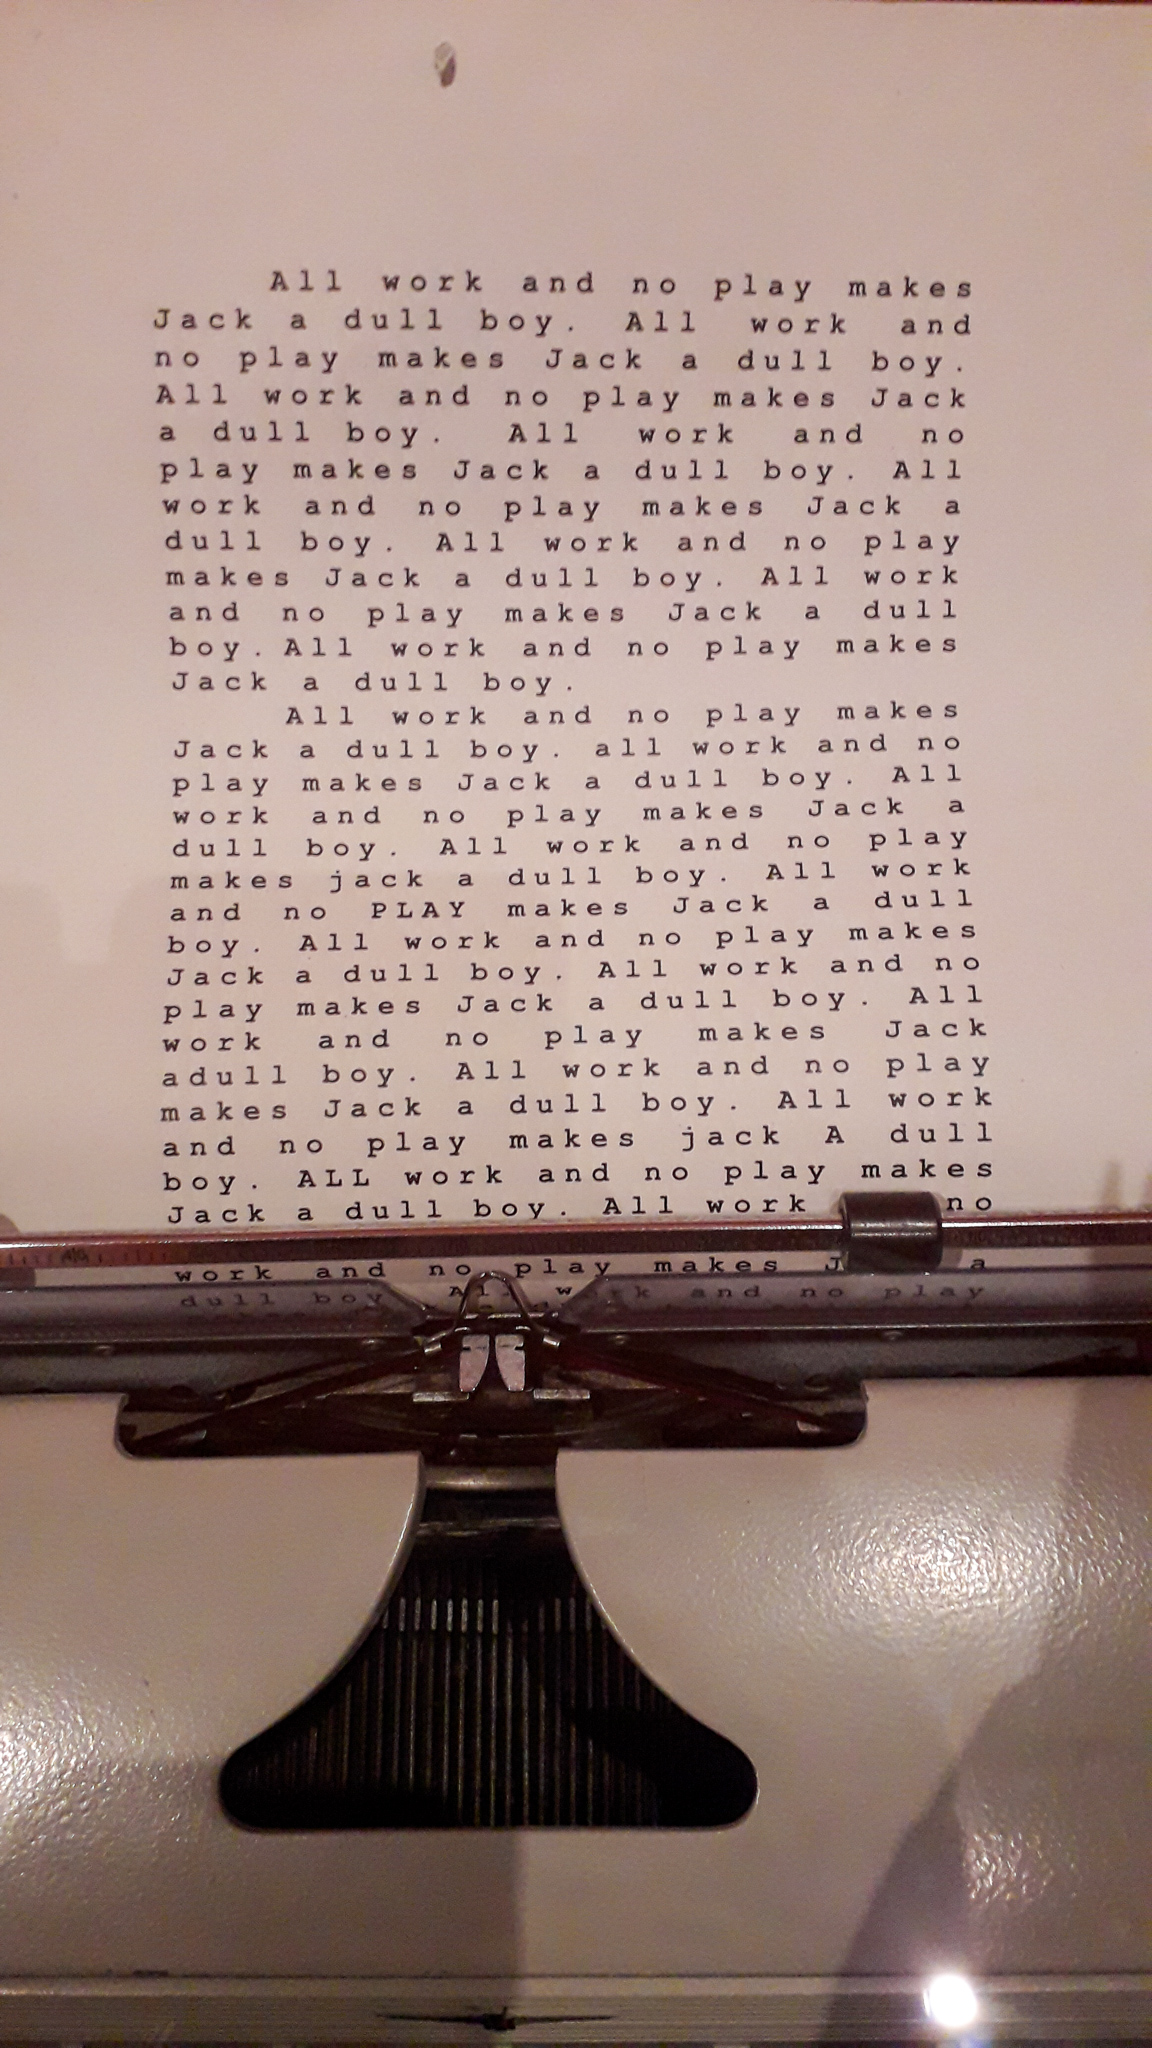 All work and no play makes
Jack a dull boy. All work and
no play makes Jack a dull boy.
All work and no play makes Jack
a dull boy. All work and no
play makes Jack a dull boy. All
work and no play makes Jack a
dull boy. All work and no play
makes Jack a dull boy. All work
and no play makes Jack a dull
boy.All work and no play makes
Jack a dull boy.
All work and no play makes
Jack a dull boy. all work and no
play makes Jack a dull boy. All
work and no play makes Jack a
dull boy. All work and no play
makes jack a dull boy. All work
and no PLAY makes Jack a dull
boy. All work and no play makes
Jack a dull boy. All work and no
play makes Jack a dull boy. All
work and no play makes Jack
adull boy. All work and no play
makes Jack a dull boy. All work
and no play makes jack A dull
boy. ALL work and no play makes
Jack a dull boy. All work no
work and no play makes a
dull boy and no play